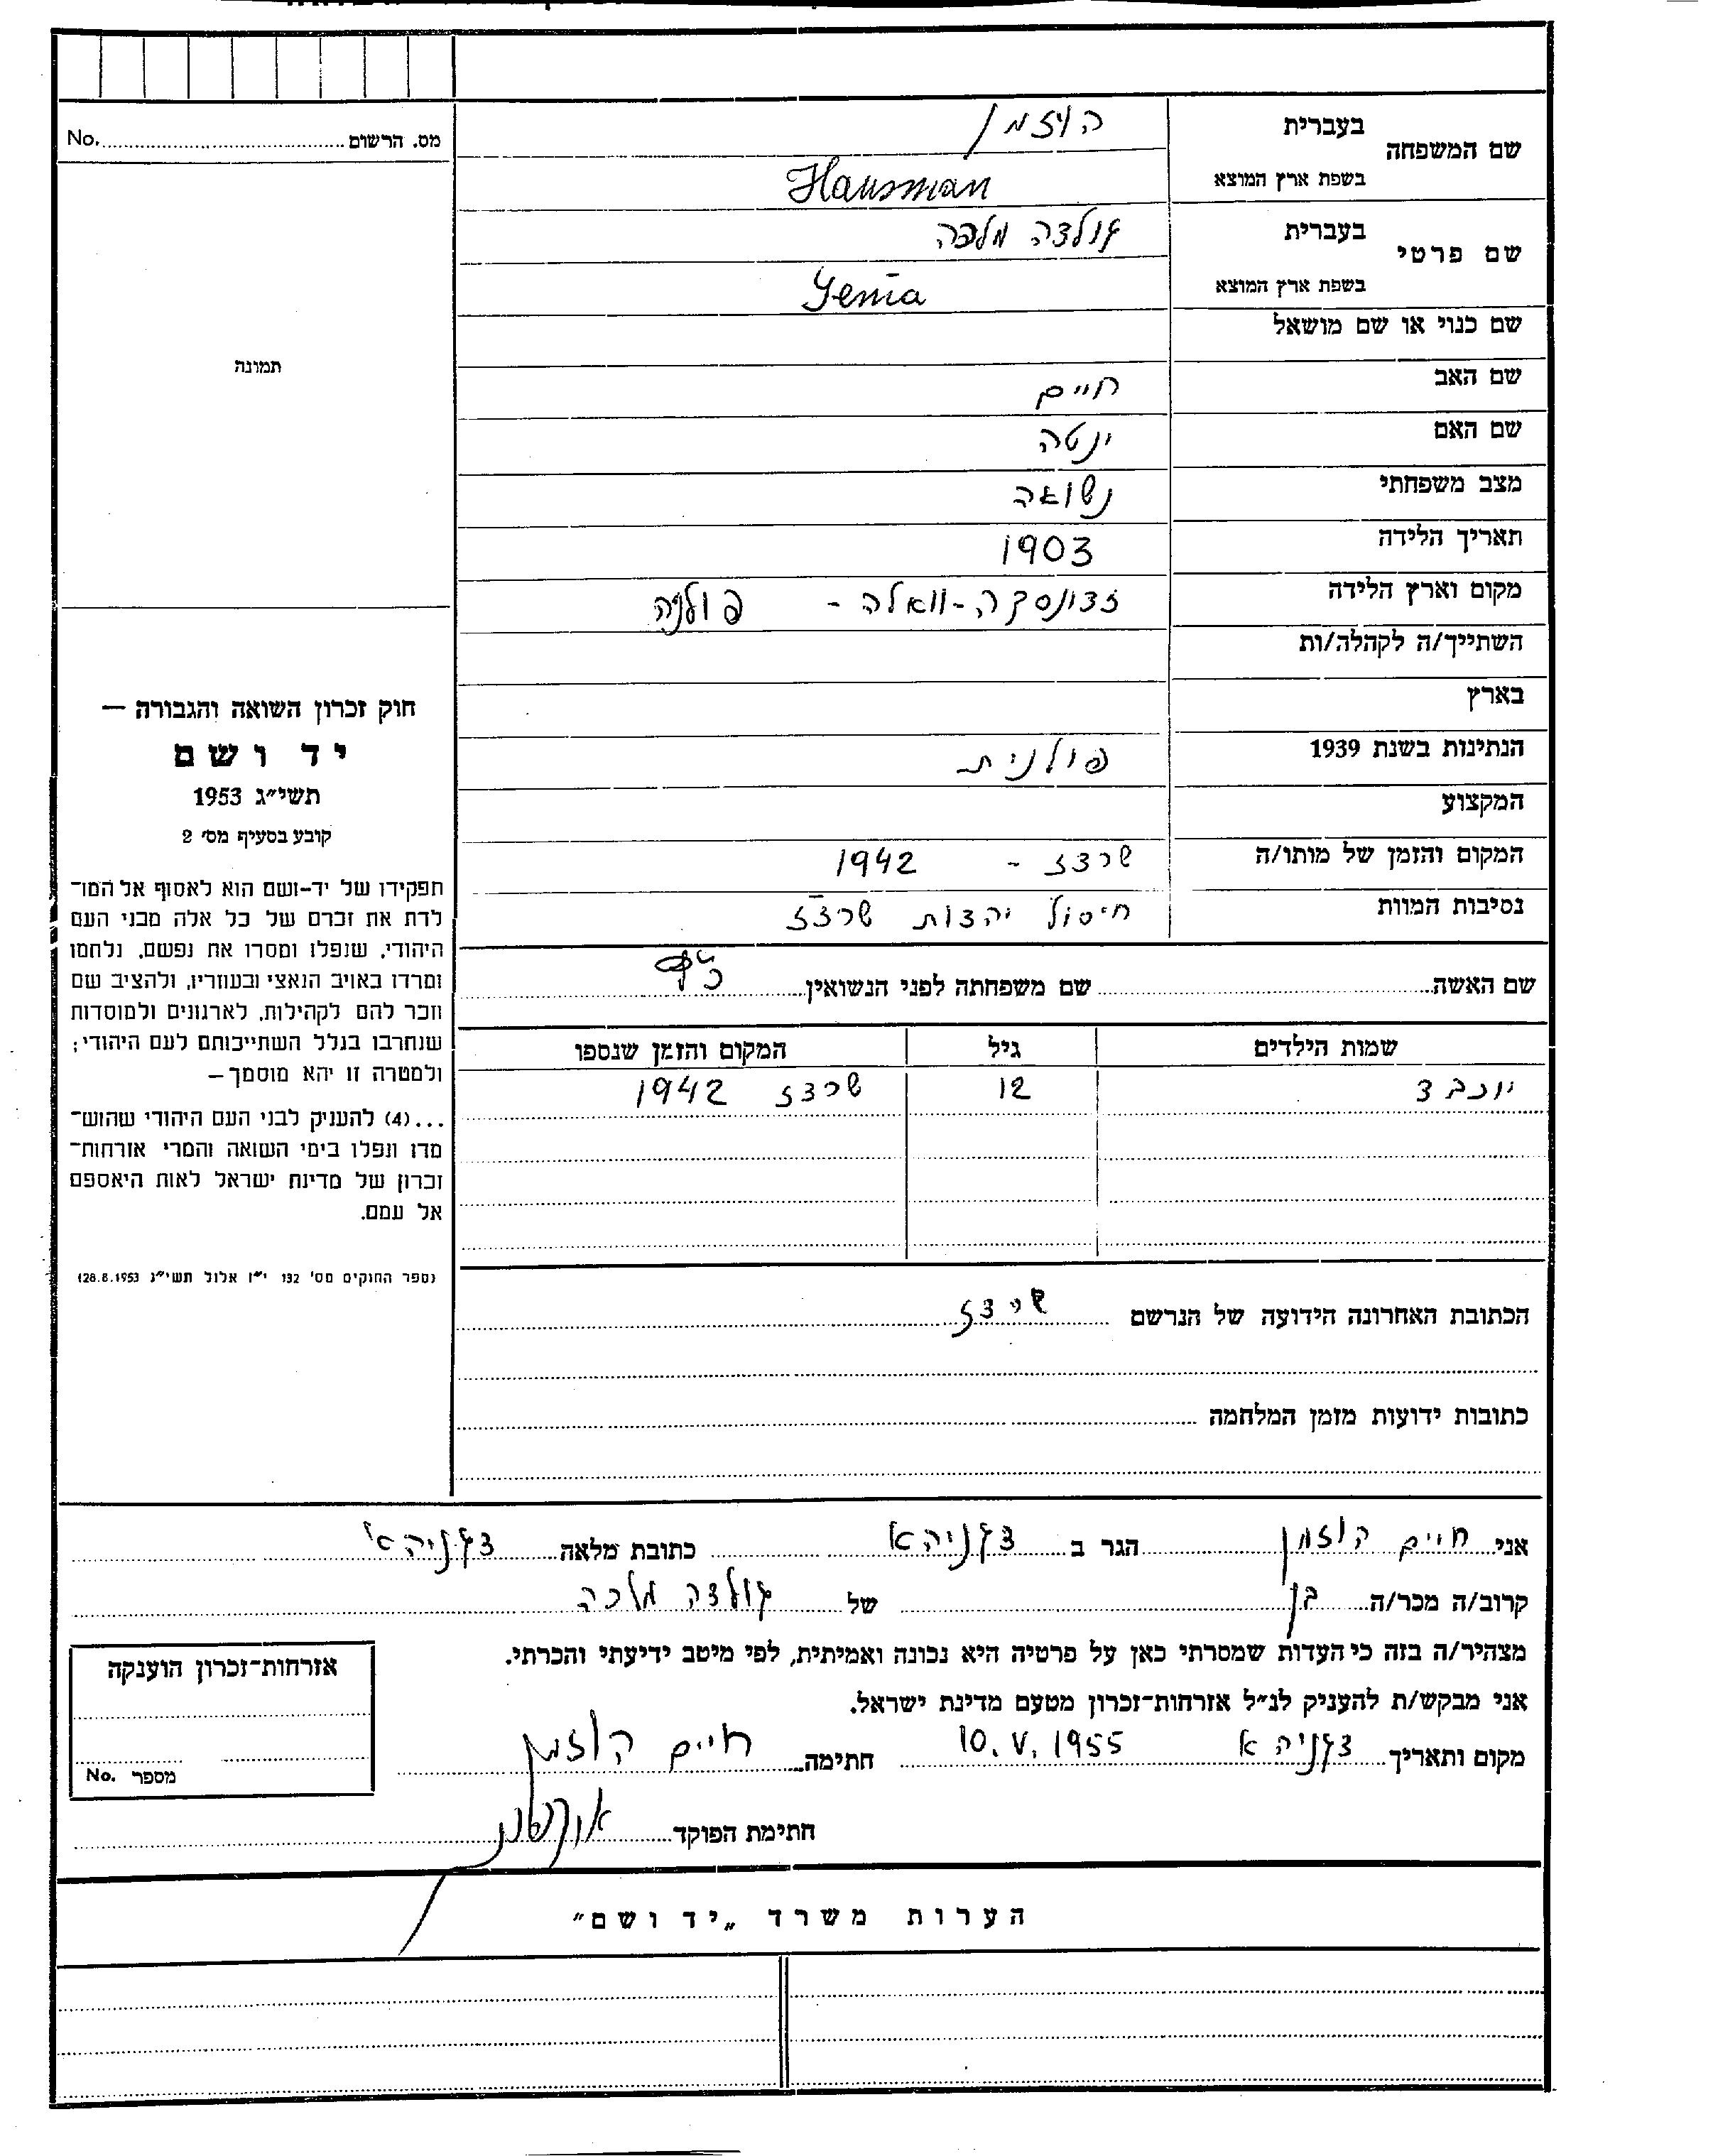 שם המשפחה
בעברית הוזמן
בשפת ארץ המוצא Hausman
שם פרטי
בעברית גולדה מלכה
בשפת ארץ המוצא Genia
שם כנוי או שם מושאל
שם האב חיים
שם האם ינטה
מצב משפחתי נשואה
תאריך הלידה 1903
מקום וארץ הלידה זדונסקה-וואלה - פולניה
השתייך/ה לקהלה/ות
בארץ
הנתינות בשנת 1939 פולנית
המקצוע
המקום והזמן של מותו/ה שרדז - 1942
נסיבות המוות חיסול יהדות שרדז
שם האשה שם משפחתה לפני הנשואין
שמות הילדים גיל המקום והזמן שנספו
יוכבד 12 שרדז 1942
הכתובת האחרונה הידועה של הנרשם שרדז
כתובות ידועות מזמן המלחמה
מס. הרשום No.
תמונה
חוק זכרון השואה והגבורה —
יד ושם
תשי״ג 1953
קובע בסעיף מס׳ 2
תפקידו של יד-ושם הוא לאסוף אל המו־
לדת את זכרם של כל אלה מבני העם
היהודי, שנפלו ומסרו את נפשם, נלחמו
ומרדו באויב הנאצי ובעוזריו, ולהציב שם
וזכר להם לקהילות, לארגונים ולמוסדות
שנחרבו בגלל השתייכותם לעם היהודי;
ולמטרה זו יהא מוסמך—
...(4) להעניק לבני העם היהודי שהוש־
מדו ונפלו בימי השואה והמרי אזרחות־
זכרון של מדינת ישראל לאות היאספם
אל עמם.
(ספר החוקים מס׳ 132 י״ז אלול תשי״ג 28.8.1953)
אני חיים הוזמן הגר ב דגניה א כתובת מלאה דגניה א׳
קרוב/ה מכר/ה בן של גולדה מלכה
מצהיר/ה בזה כי העדות שמסרתי כאן על פרטיה היא נכונה ואמיתית, לפי מיטב ידיעתי והכרתי.
אני מבקש/ת להעניק לנ״ל אזרחות־זכרון מטעם מדינת ישראל.
מקום ותאריך דגניה א 10.V.1955 חתימה חיים הוזמן
חתימת הפוקד
אזרחות־זכרון הוענקה
מספר No.
הערות משרד „יד ושם״